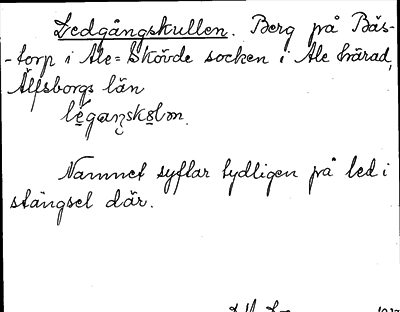 Ledgångskullen. Berg på Bås-
-torp i Ale=Skövde socken i Ale härad,
Älfsborgs län
Namnet syftar tydligen på led i
stängsel där.